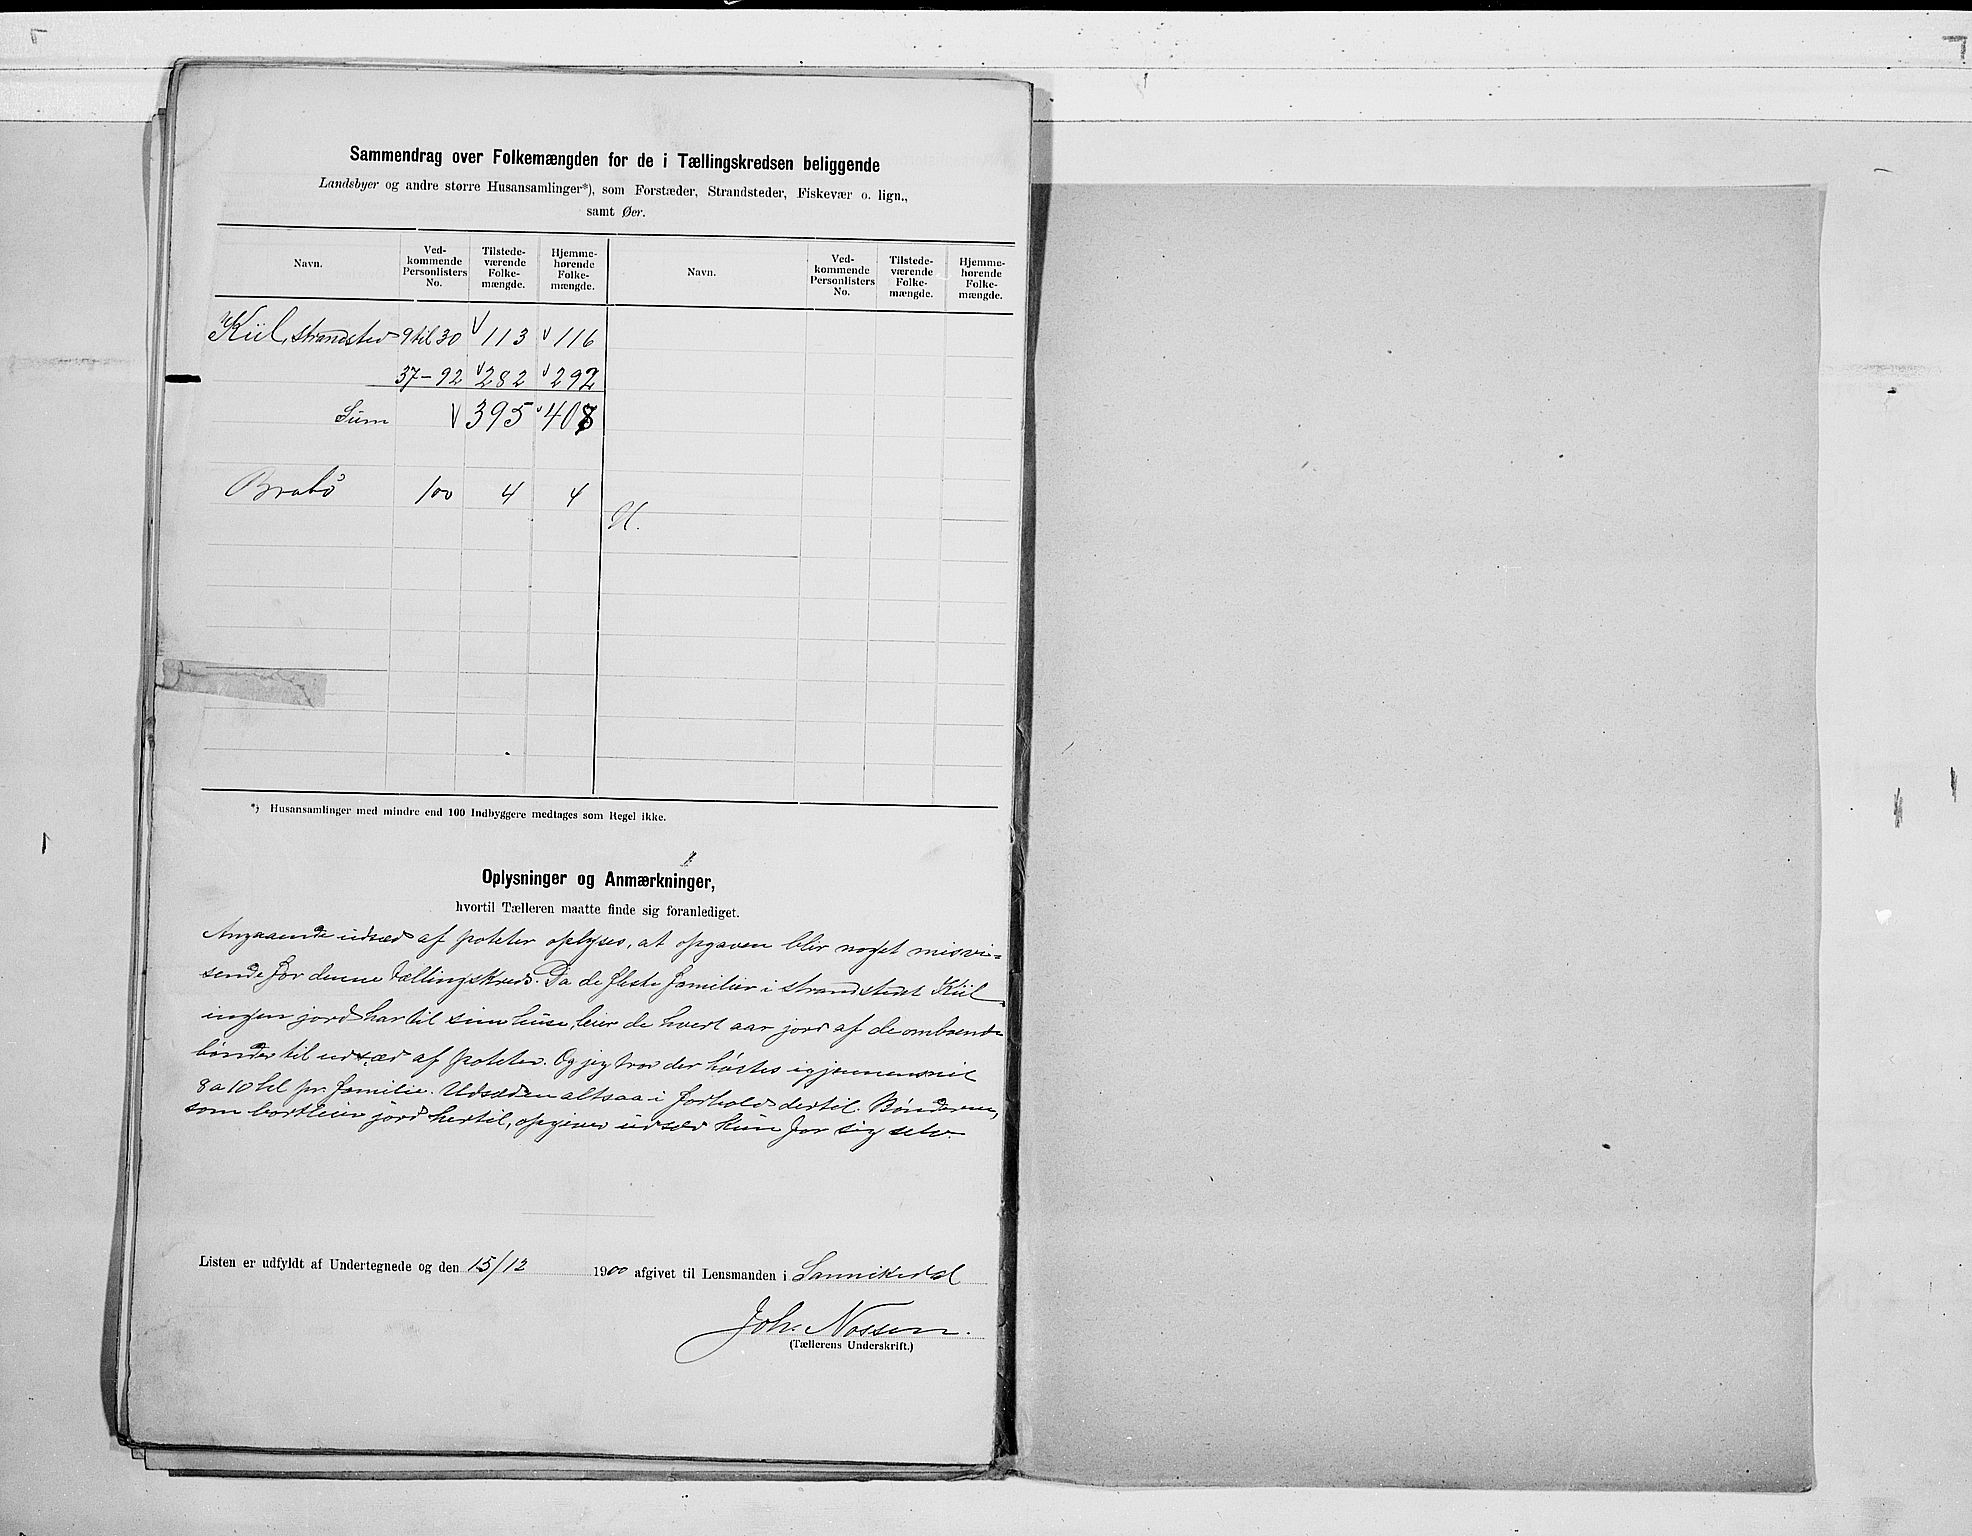 Sammendrag over Folkemængden for de i Tællingskredsen beliggende
Landsbyer og andre større Husansamlinger*), som Forstæder, Strandsteder, Fiskevær o. lign.,
samt Øer.
Navn. Ved-kommende Personlisters No. Tilstede-værende Folke-mængde. Hjemme-hørende Folke-mængde. Navn. Ved-kommende Personlisters No. Tilstede-værende Folke-mængde. Hjemme-hørende Folke-mængde.
Kiil, strandsted 9 til 30 113 116
37-92 282 292
Sum 395 408
Brabø 100 4 4
H.
*) Husansamlinger med mindre end 100 Indbyggere medtages som Regel ikke.
Oplysninger og Anmærkninger,
hvortil Tælleren maatte finde sig foranlediget.
Angaaende udsæd af poteter oplyses, at opgaven blir noget misvi-
sende for denne tællingskreds. Da de fleste familier i strandstedet Kiil
ingen jord har til sine huse, leier de hvert aar jord af de omboende
bønder til udsæd af poteter. Og jeg tror der høstes igjennemsnit
8 a 10 hl pr. familie. Udsæden altsaa i forhold dertil. Bønderne,
som bortleier jord hertil, opgiver udsæd kun for sig selv.
Listen er udfyldt af Undertegnede og den 15/12 1900 afgivet til Lensmanden i Sannikedal
Joh. Nossen.
(Tællerens Underskrift.)